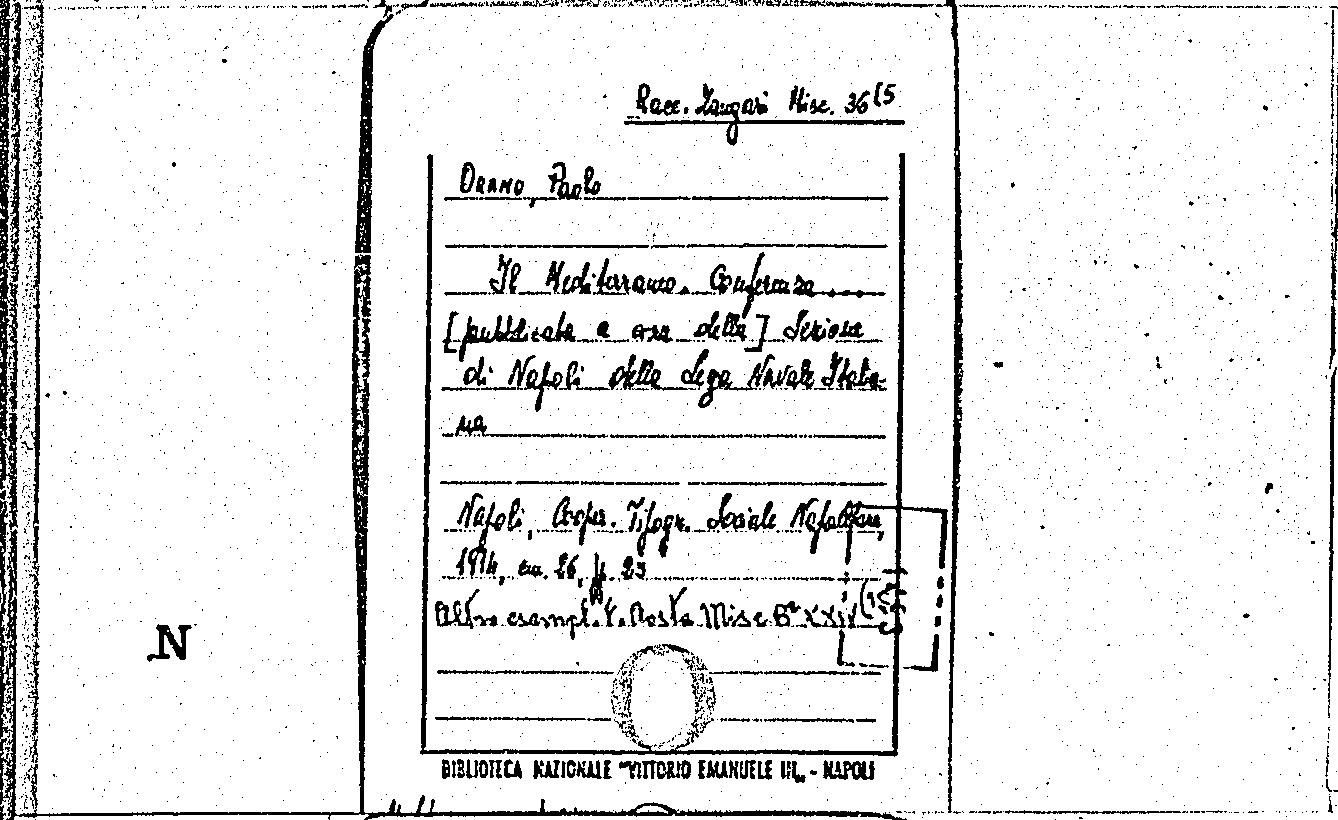 Racc. Zangari Misc. 36(5
Orano, Paolo
Il Mediterraneo. Conferenza....
[pubblicata a cura della] Sezione
di Napoli della Lega Navale Italia-
na
Napoli, Cooper. Tipogr. Sociale
1914, cm. 26, p. 23
Altro esempl. V. Aosta Misc. Bª XXIV
N
BIBLIOTECA NAZIONALE "VITTORIO EMANUELE III„ - NAPOLI